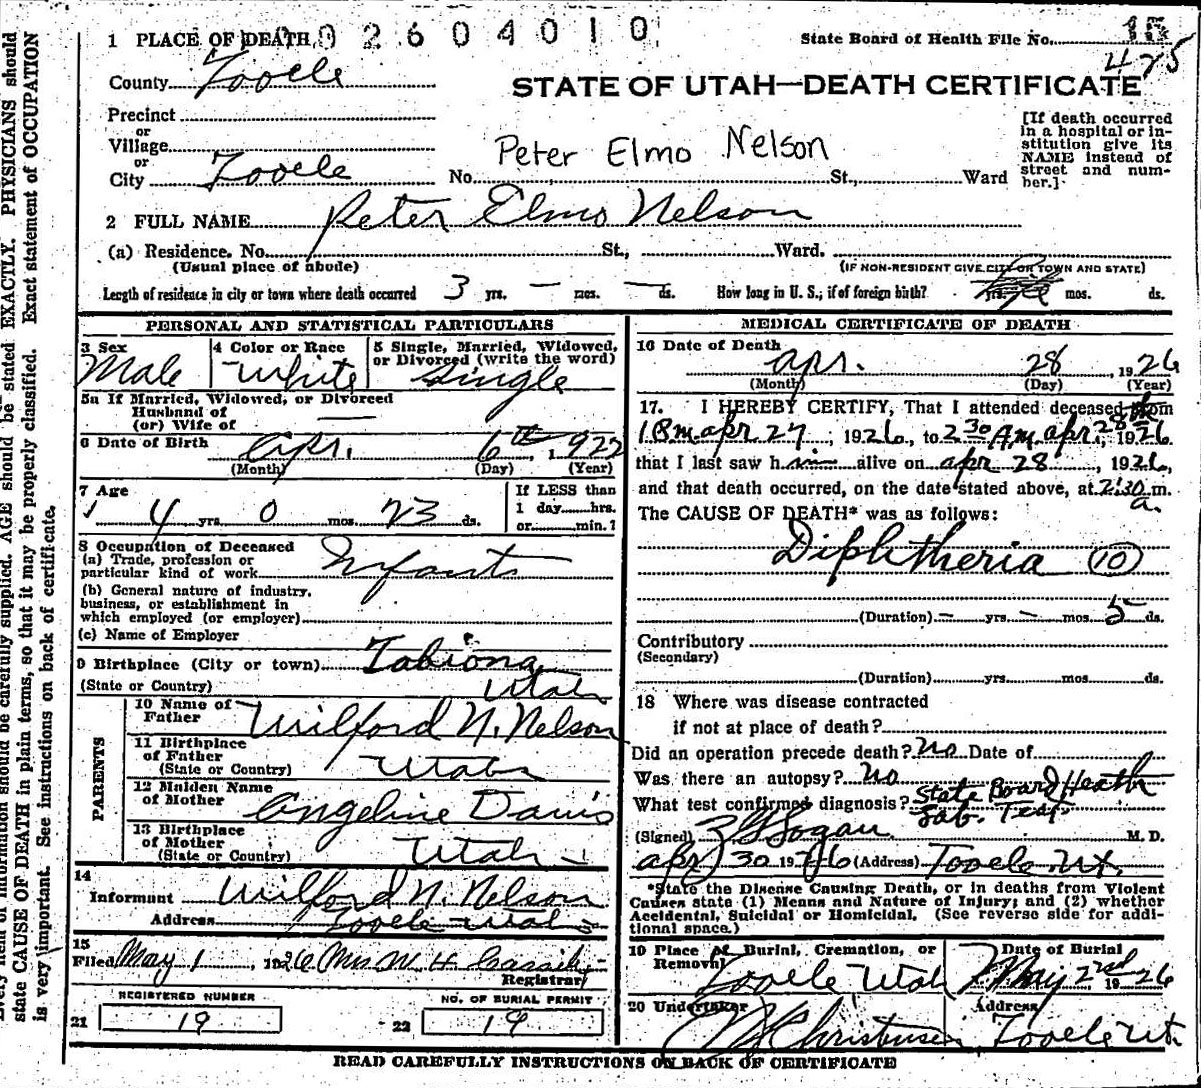 0 0 2 6 0 4 0 1 0
1 PLACE OF DEATH
State Board of Health File No. 15
425
County Tooele
STATE OF UTAH—DEATH CERTIFICATE
Precinct
or
Village
or
City Tooele
Peter Elmo Nelson
No. St., Ward
[If death occurred
in a hospital or in-
stitution give its
NAME instead of
street and num-
ber.]
2 FULL NAME Peter Elmo Nelson
(a) Residence. No. St., Ward.
(Usual place of abode)
(IF NON-RESIDENT GIVE CITY OR TOWN AND STATE)
Length of residence in city or town where death occurred 3 yrs. — mos. — ds. How long in U. S.; if of foreign birth? yrs. mos. ds.
PERSONAL AND STATISTICAL PARTICULARS
3 Sex
Male
4 Color or Race
White
5 Single, Married, Widowed,
or Divorced (write the word)
Single
5a If Married, Widowed, or Divorced
Husband of
(or) Wife of —
6 Date of Birth Apr. 6th, 1922
(Month) (Day) (Year)
7 Age
4 yrs. 0 mos. 23 ds.
If LESS than
1 day hrs.
or min.?
8 Occupation of Deceased
(a) Trade, profession or
particular kind of work Infant
(b) General nature of industry,
business, or establishment in
which employed (or employer)
(c) Name of Employer
9 Birthplace (City or town) Tabiona
(State or Country) Utah
PARENTS
10 Name of
Father Wilford N. Nelson
11 Birthplace
of Father
(State or Country) Utah
12 Maiden Name
of Mother Angeline Davis
13 Birthplace
of Mother
(State or Country) Utah
14
Informant Wilford N. Nelson
Address Tooele Utah
15
Filed May 1, 1926 Mrs W. H. Cassity
Registrar
REGISTERED NUMBER
21 19
NO. OF BURIAL PERMIT
22 19
MEDICAL CERTIFICATE OF DEATH
16 Date of Death
Apr. 28, 1926
(Month) (Day) (Year)
17. I HEREBY CERTIFY, That I attended deceased from
Apr 27, 1926, to 2 30 A.M. Apr. 28th, 1926
that I last saw him alive on Apr 28, 1926,
and that death occurred, on the date stated above, at 2:30 m.
a.
The CAUSE OF DEATH* was as follows:
Diphtheria (10)
(Duration) — yrs. — mos. 5 ds.
Contributory
(Secondary)
(Duration) yrs. mos. ds.
18 Where was disease contracted
if not at place of death?
Did an operation precede death? no Date of
Was there an autopsy? no
What test confirmed diagnosis? State Board Heath
Lab. Test
(Signed) M. D.
Apr 30 1926 (Address) Tooele Ut.
*State the Disease Causing Death, or in deaths from Violent
Causes state (1) Means and Nature of Injury; and (2) whether
Accidental, Suicidal or Homicidal. (See reverse side for addi-
tional space.)
19 Place of Burial, Cremation, or
Removal Tooele Utah
Date of Burial
May 2nd 1926
20 Undertaker
Christensen
Address
Tooele Ut.
READ CAREFULLY INSTRUCTIONS ON BACK OF CERTIFICATE
state CAUSE OF DEATH in plain terms, so that it may be properly classified. Exact statement of OCCUPATION
is very important. See instructions on back of certificate.
information should be carefully supplied. AGE should be stated EXACTLY. PHYSICIANS should